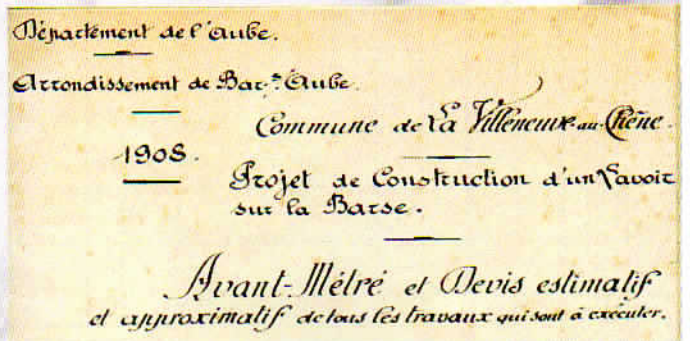 Département de l'Aube.
Arrondissement de Bar-s-Aube.
Commune de La Villeneuve-au-Chêne.
1908.
Projet de Construction d'un Lavoir
sur la Barse.
Avant-Métré et Devis estimatif
et approximatif de tous les travaux qui sont à exécuter.